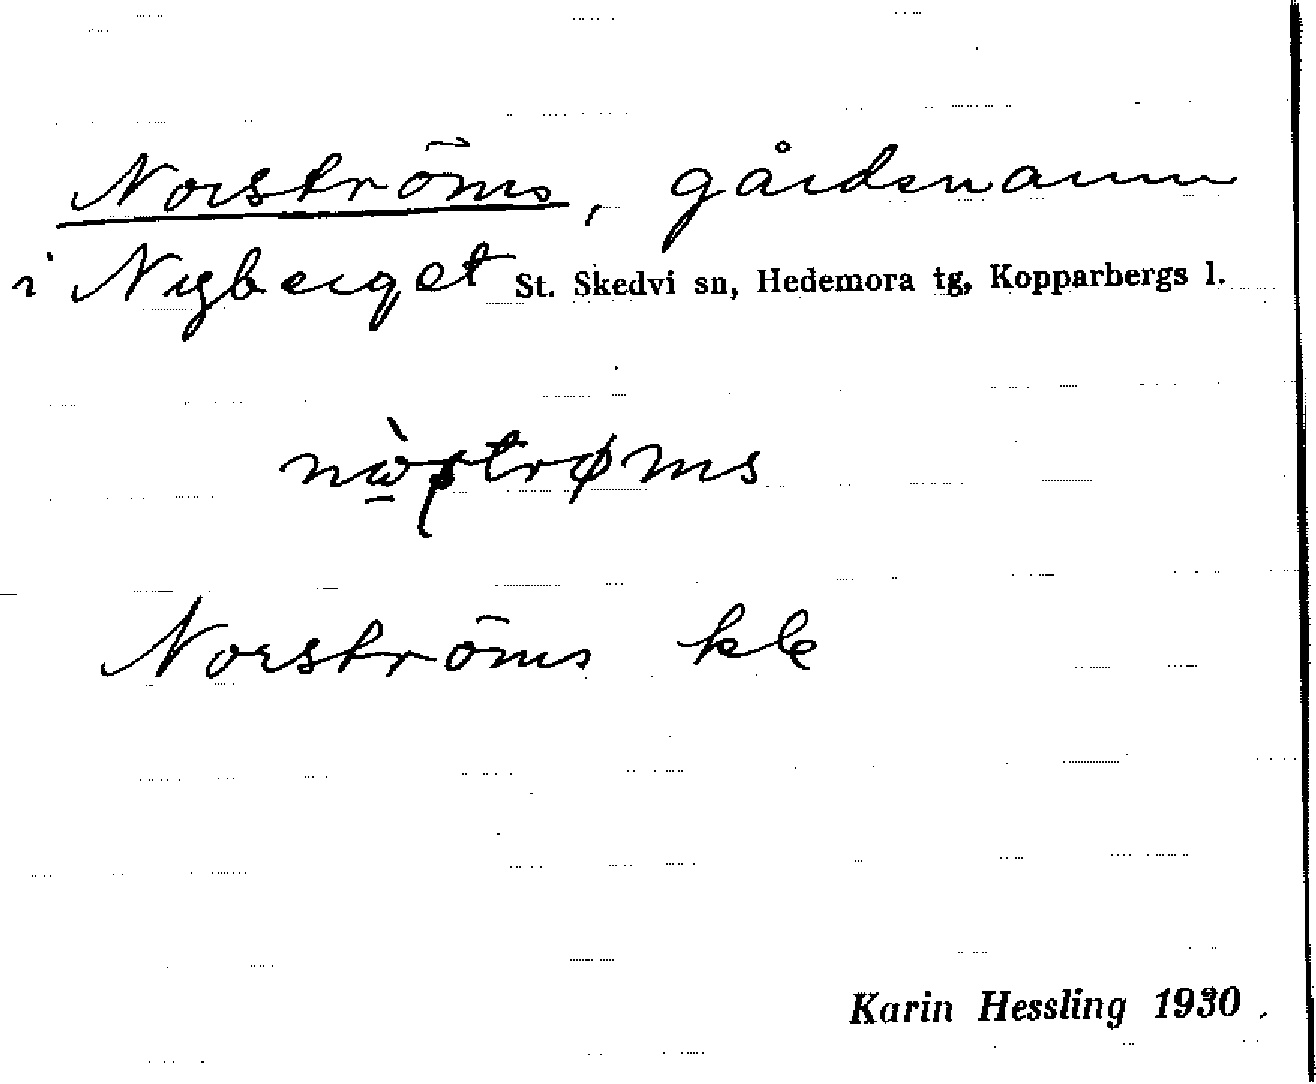 Norströms, gårdsnamn
i Nyberget St. Skedvi sn, Hedemora tg, Kopparbergs l.
Norströms kk
Karin Hessling 1930